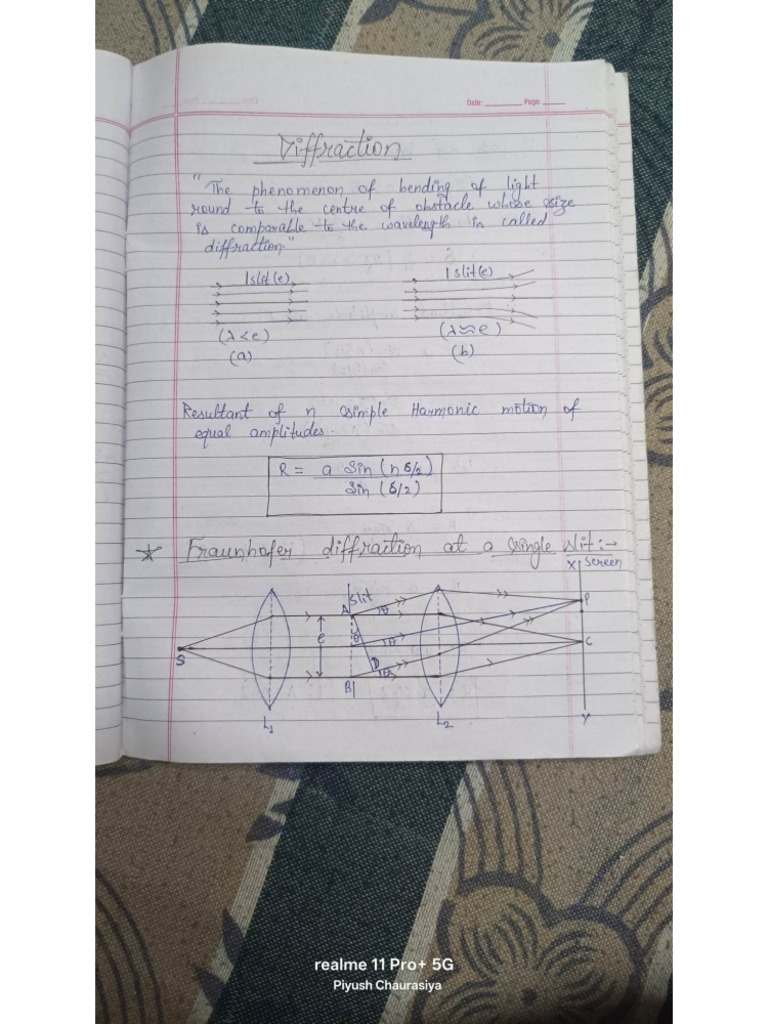 Date: ________ Page: _____
Diffraction
"The phenomenon of bending of light
round to the centre of obstacle whose size
is comparable to the wavelength is called
diffraction."
1 slit (e) 1 slit (e)
(λ < e) (λ ≈ e)
(a) (b)
Resultant of n simple Harmonic motion of
equal amplitudes.
R = a Sin (n δ/2)
Sin (δ/2)
★ Fraunhofer diffraction at a single slit :→
X Screen
Slit
A θ P
S e θ C
D θ
B
L₁ L₂ Y
realme 11 Pro+ 5G
Piyush Chaurasiya